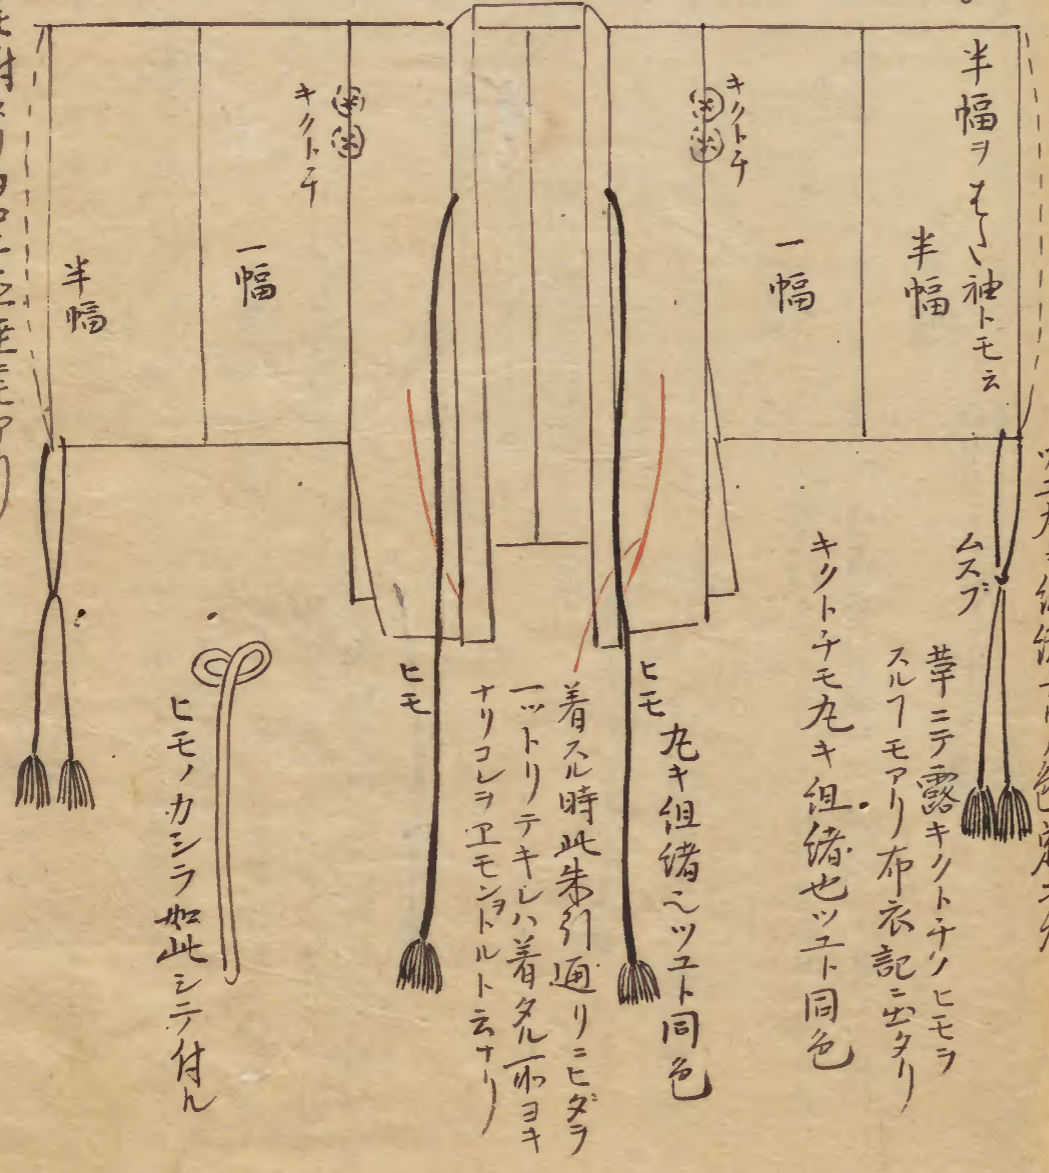 半幅ヲはた袖トモ云
半幅
一幅
キクトチ
キクトチ
一幅
半幅
ムスブ
革ニテ露キクトチノヒモヲ
スルヿモアリ布衣記ニ出タリ
キクトチモ丸キ組緒也ツユト同色
ヒモ 丸キ組緒也ツユト同色
着スル時此朱引通リニヒダヲ
一ツトリテキレハ着タル所ヨキ
ナリコレヲヱモンヲトルト云ナリ
ヒモ
ヒモノカシラ如此シテ付ル